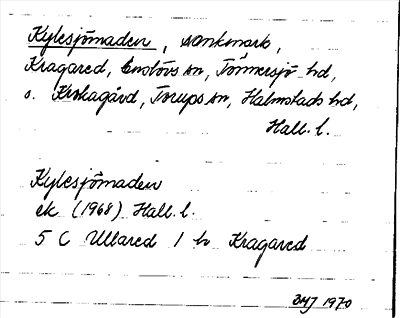 Kylesjömaden, sankmark,
Kragared, Enslövs sn, Tönnersjö hd,
o. Krokagård, Torups sn, Halmstads hd,
Hall. l.
Kylesjömaden
ek (1968) Hall. l.
5 C Ullared 1 b Kragared
1970